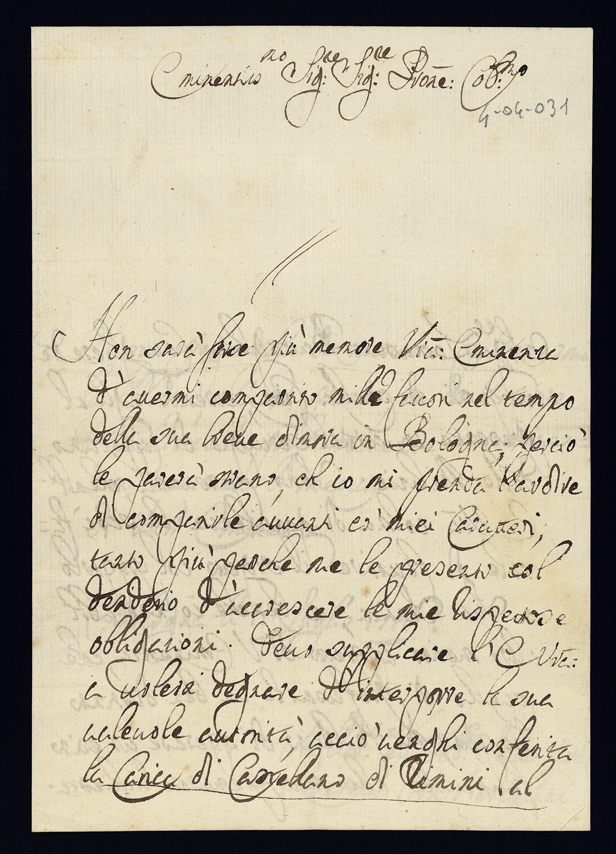 Eminentis.mo Sig.re Sig.re P.rone Col.mo
4-04-031
Non sarà forse più memore V.ra Eminenza
d'auermi compartito mille fauori nel tempo
della sua breue dimora in Bologna, perciò
le parerà strano, ch'io mi prenda l'ardire
di comparirle auuanti co' miei Caratteri,
tanto più perche me le presento col
desiderio d'accrescere le mie rispettose
obligazioni. Deuo supplicare l'E V.ra
a uolersi degnare d'interporre la sua
ualeuole autorità acciò uenghi conferita
la Carica di Castellano di Rimini al